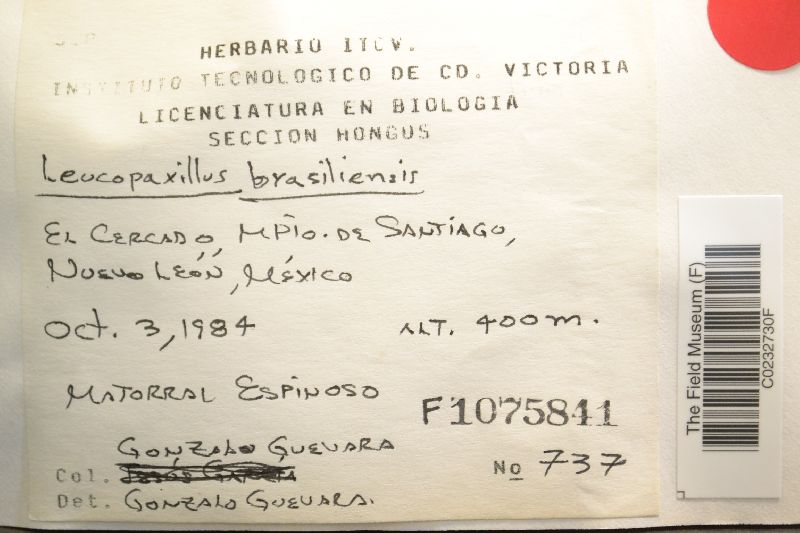 HERBARIO ITCV.
INSTITUTO TECNOLOGICO DE CD. VICTORIA
LICENCIATURA EN BIOLOGIA
SECCION HONGUS
Leucopaxillus brasiliensis
El Cercado, Mpio. de Santiago,
Nuevo León, México
Oct. 3, 1984 Alt. 400 m.
Matorral Espinoso
F1075841
Gonzalo Guevara
Col. Jesús García
No 737
Det. Gonzalo Guevara.
The Field Museum (F)
C0232730F